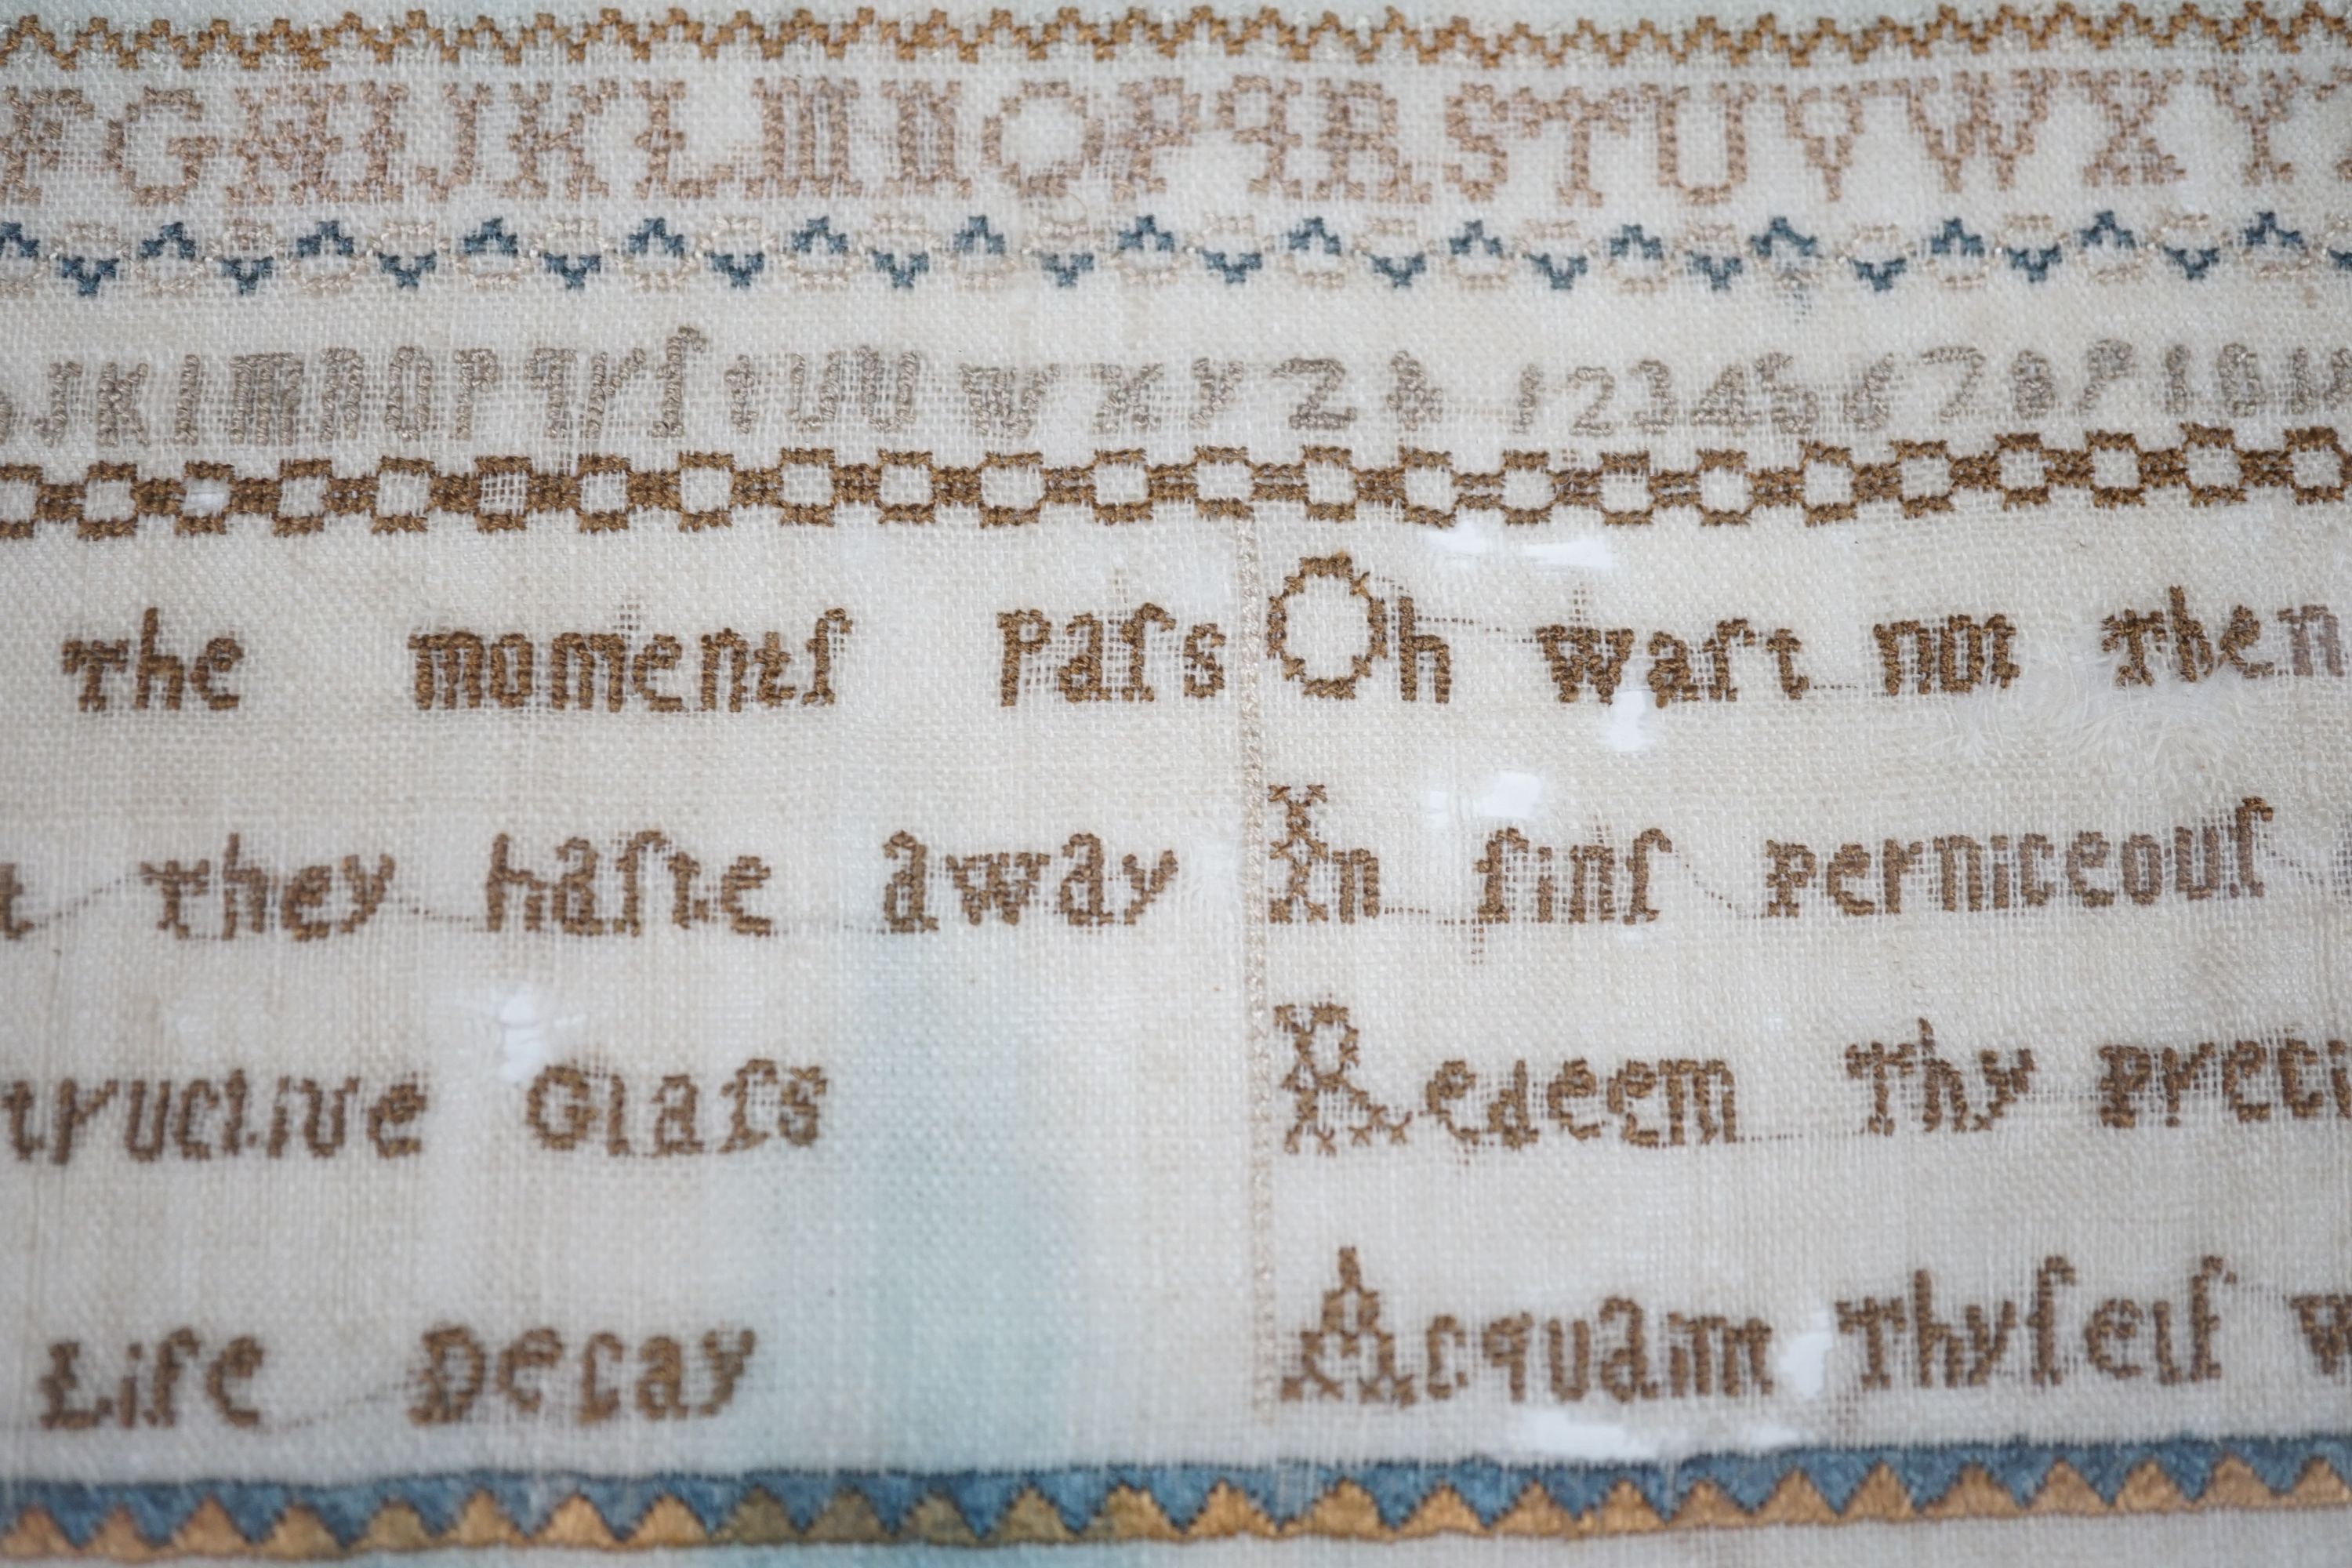 F G H I J K L M N O P Q R S T U V W X Y
j k l m n o p q r ſ t u v w x y z & 1 2 3 4 5 6 7 8 9 10
the momentſ Paſs
they haſte away
tructive Glaſs
Life Decay
Oh waſt not then
In ſinſ perniceouſ
Redeem Thy
Acquaint Thyſelf